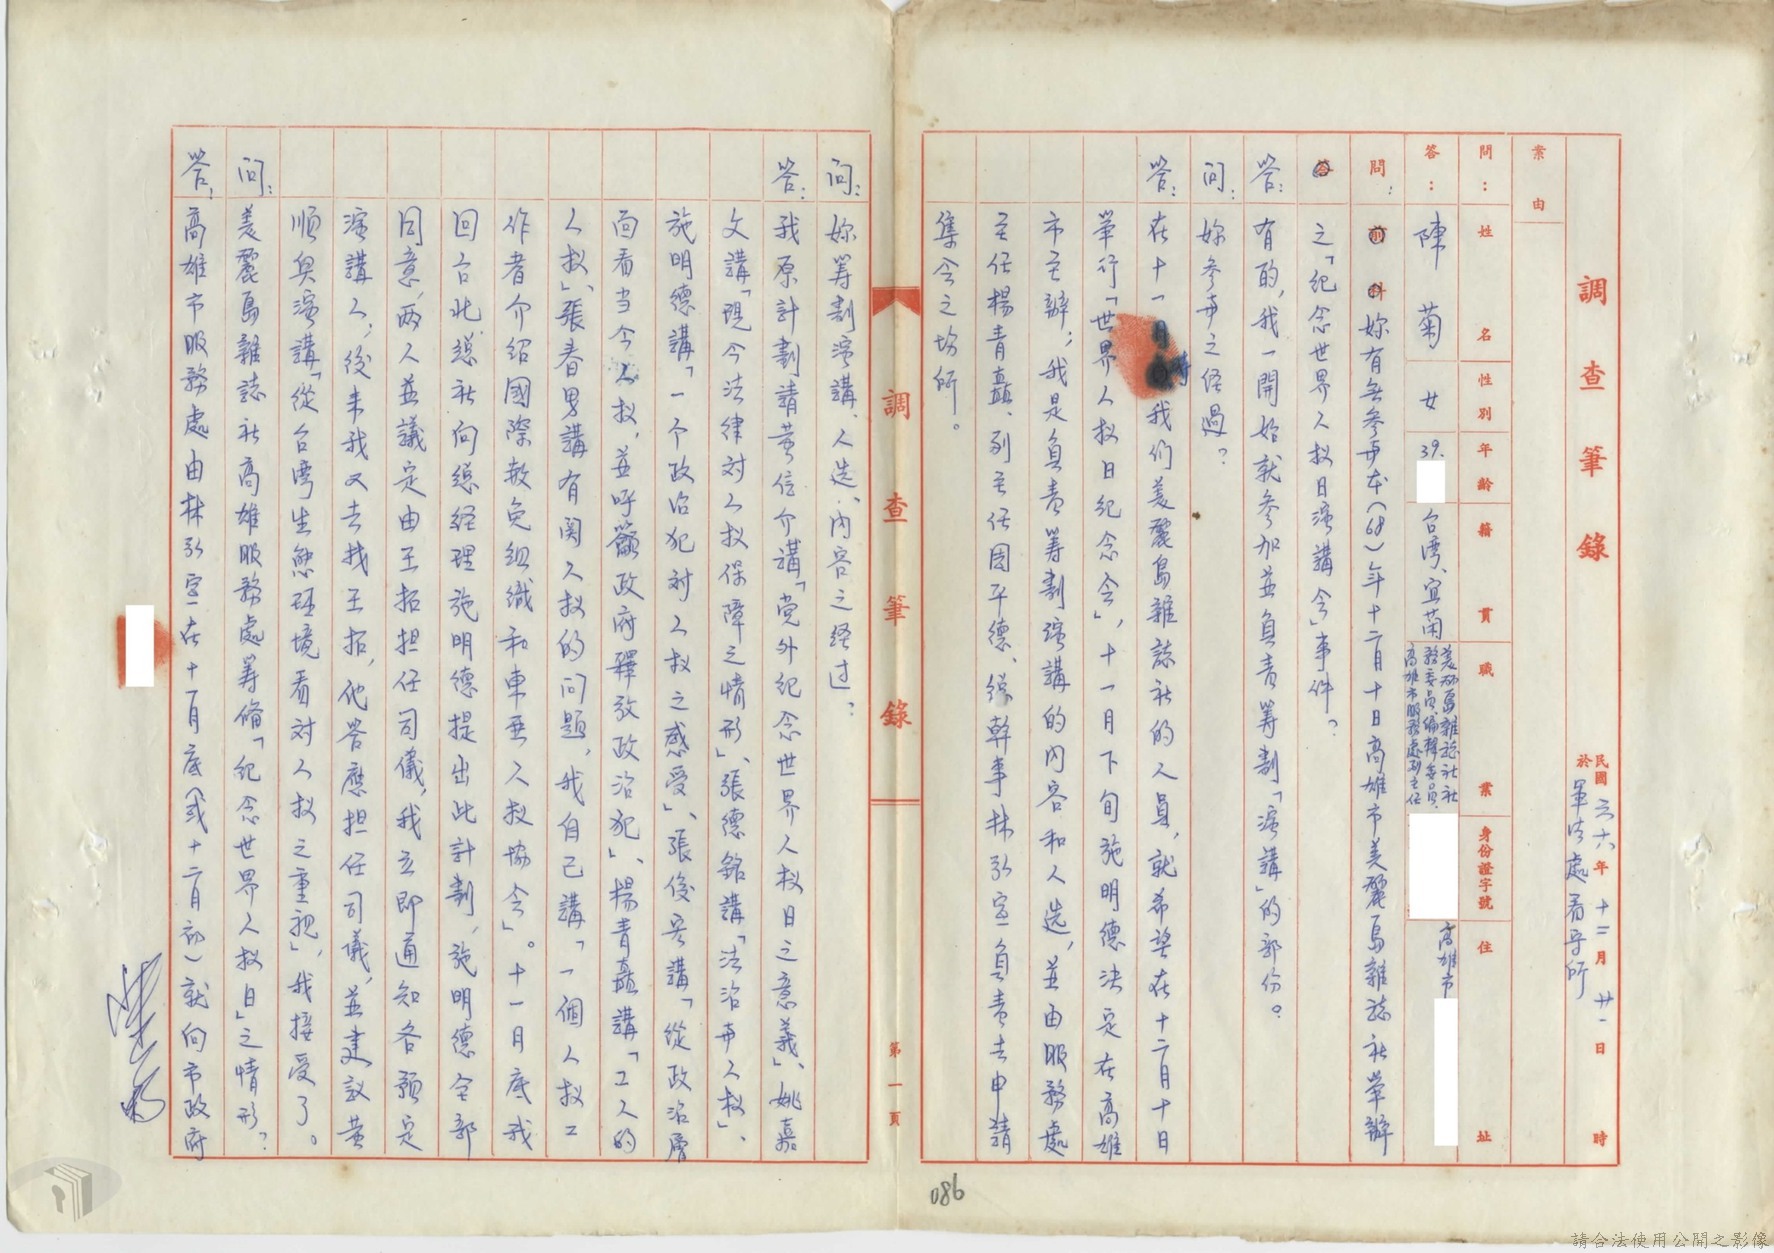 調查筆錄
民國六十八年十二月廿一日 時
於軍法處看守所
案由
問:姓名 性別 年齡 籍貫 職業 身份證字號 住址
答:陳菊 女 39. 台灣、宜蘭 美麗島雜誌社社務委員編輯委員、高雄市服務處副主任 高雄市
問:前科 妳有無參與本(68)年十二月十日高雄市美麗島雜誌社舉辦
答 之「紀念世界人权日演講会」事件?
答:有的,我一開始就參加並負責筹劃「演講」的部份。
问:妳參與之经過?
答:在十一月時我们美麗島雜誌社的人員,就希望在十二月十日
舉行「世界人权日紀念会」,十一月下旬施明德決定在高雄
市主辦;我是負責筹劃演講的内容和人选,並由服務處
主任楊青矗、副主任周平德、總幹事林弘宣負責去申請
集会之场所。
调查筆錄
第一頁
问:妳筹劃演講、人选、内容之经过?
答:我原計劃請黄信介講「党外紀念世界人权日之意義」、姚嘉
文講「現今法律対人权保障之情形」、張德銘講「法治與人权」、
施明德講「一个政治犯対人权之感受」、張俊宏講「從政治層
面看当今人权,並呼籲政府釋放政治犯」、楊青矗講「工人的
人权」、張春男講有関人权的问題,我自己講「一個人权工
作者介紹國際赦免組織和東亜人权協会」。十一月底我
回台北總社向總经理施明德提出此計劃,施明德全部
同意,两人並議定由王拓担任司儀,我立即通知各預定
演講人,後来我又去找王拓,他答應担任司儀,並建議黄
順兴演講「從台灣生態环境看対人权之重視」,我接受了。
问:美麗島雜誌社高雄服務處筹備「紀念世界人权日」之情形?
答:高雄市服務處由林弘宣在十一月底(或十二月初)就向市政府
086
請合法使用公開之影像